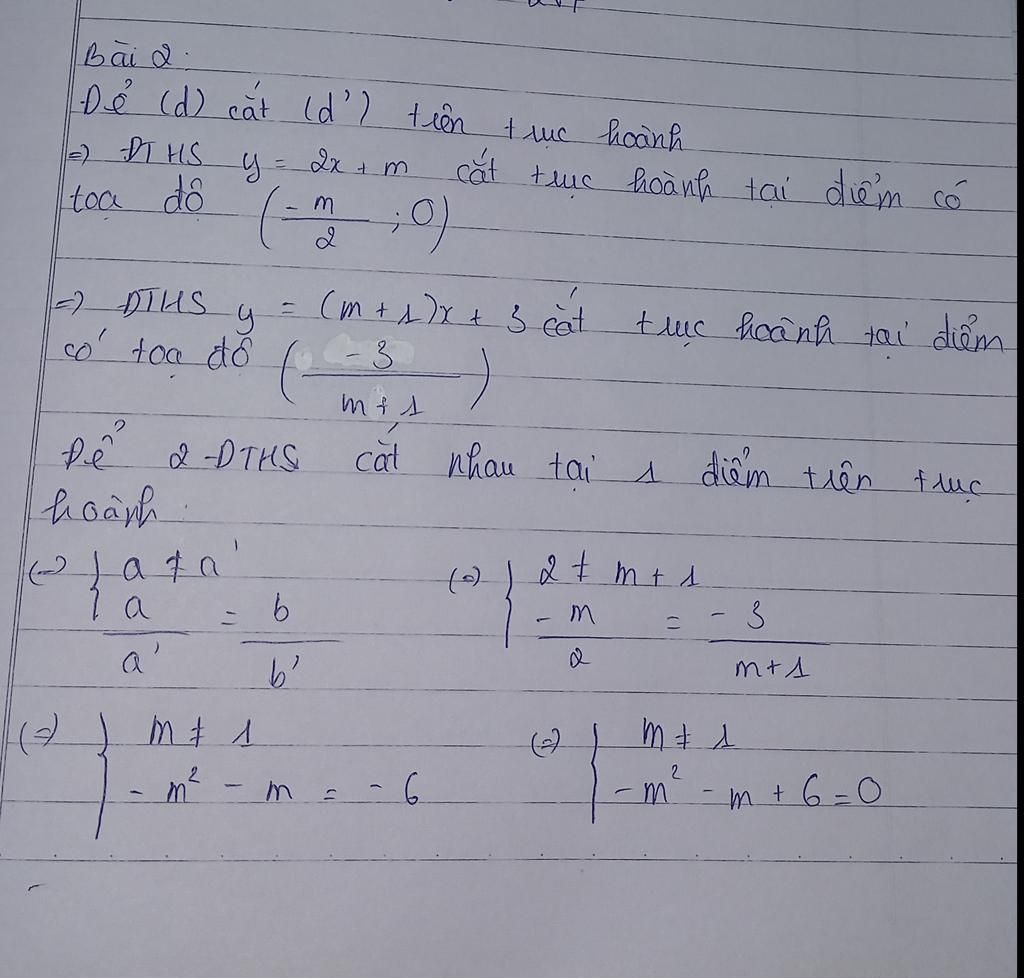 Bài 2:
Để (d) cắt (d') trên trục hoành
=> ĐTHS y = 2x + m cắt trục hoành tại điểm có
toạ độ (-m/2 ; 0)
=> ĐTHS y = (m + 1)x + 3 cắt trục hoành tại điểm
có toạ độ (-3/m+1)
Để 2 ĐTHS cắt nhau tại 1 điểm trên trục
hoành.
(=) { a ≠ a' (=) { 2 ≠ m + 1
a/a' = b/b' -m/2 = -3/m+1
(=) { m ≠ 1 (=) { m ≠ 1
-m² - m = -6 -m² - m + 6 = 0